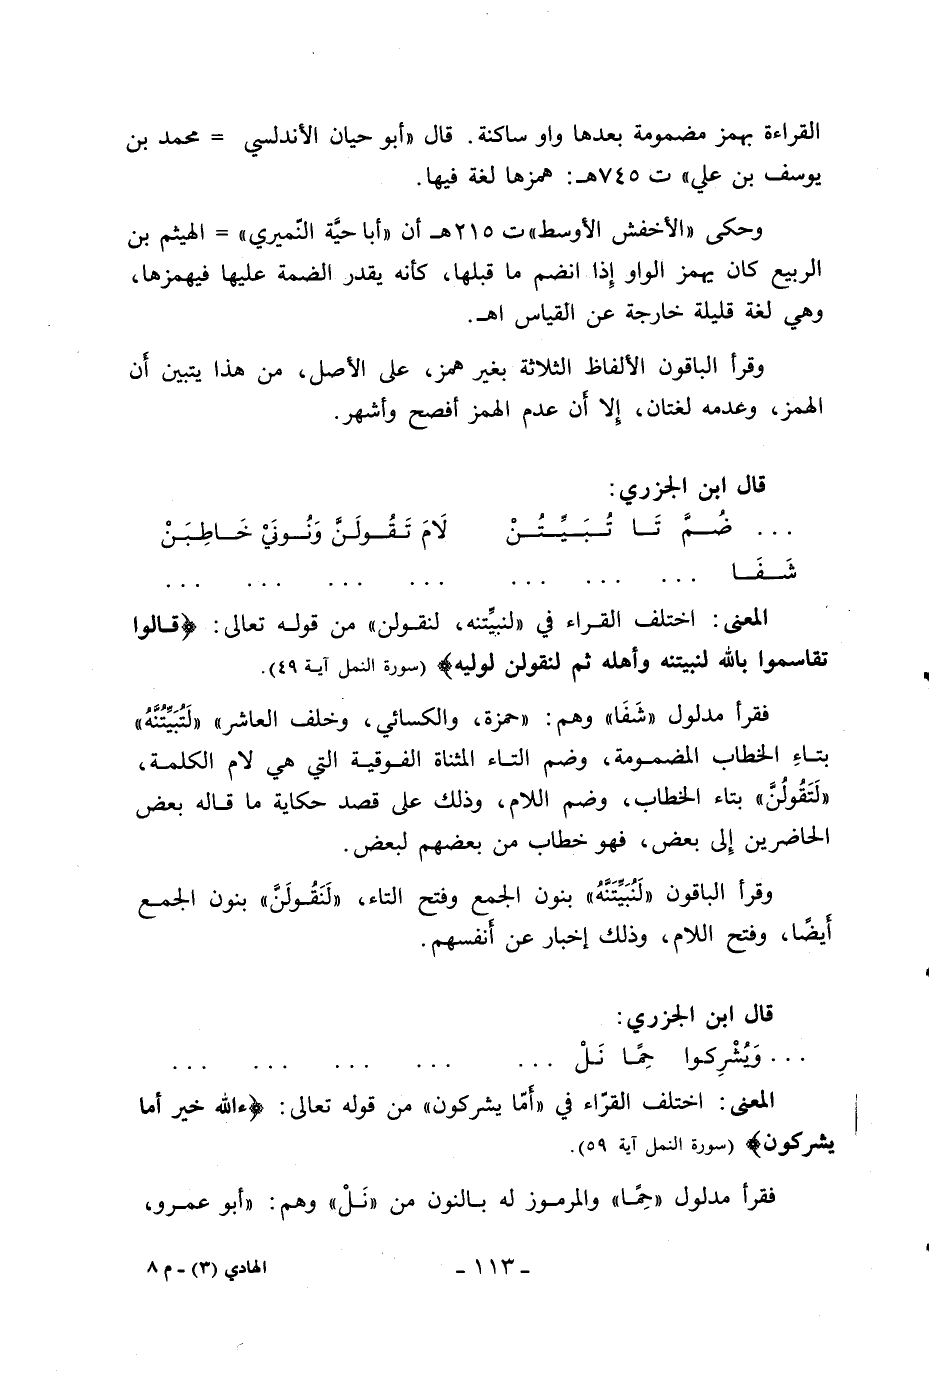 القراءة بهمز مضمومة بعدها واو ساكنة. قال «أبو حيان الأندلسي = محمد بن
يوسف بن علي» ت ٧٤٥هـ: همزها لغة فيها.
وحكى «الأخفش الأوسط»ت ٢١٥هـ أن «أبا حيَّة النّميري» = الهيثم بن
الربيع كان يهمز الواو إذا انضم ما قبلها، كأنه يقدر الضمة عليها فيهمزها،
وهي لغة قليلة خارجة عن القياس اهـ.
وقرأ الباقون الألفاظ الثلاثة بغير همز، على الأصل، من هذا يتبين أن
الهمز، وعدمه لغتان، إلا أن عدم الهمز أفصح وأشهر.
قال ابن الجزري:
... ضُـمَّ تَـا تُـبَـيِّـتُـنْ لَامَ تَـقُـولَـنَّ وَنُـونَيْ خَـاطِـبَـنْ
شَـفَـا ... ... ... ... ... ... ...
المعنى: اختلف القراء في «لنبيِّتنه، لنقولن» من قوله تعالى: ﴿قالوا
تقاسموا بالله لنبيتنه وأهله ثم لنقولن لوليه﴾ (سورة النمل آية ٤٩).
فقرأ مدلول «شَفَا» وهم: «حمزة، والكسائي، وخلف العاشر» «لَتُبَيِّتُنَّهُ»
بتاءِ الخطاب المضمومة، وضم التاء المثناة الفوقية التي هي لام الكلمة،
«لَتَقُولُنَّ» بتاء الخطاب، وضم اللام، وذلك على قصد حكاية ما قاله بعض
الحاضرين إلى بعض، فهو خطاب من بعضهم لبعض.
وقرأ الباقون «لَنُبَيِّتَنَّهُ» بنون الجمع وفتح التاء، «لَنَقُولَنَّ» بنون الجمع
أيضًا، وفتح اللام، وذلك إخبار عن أنفسهم.
قال ابن الجزري:
... وَيُشْرِكوا حِمًّا نَلْ ... ... ... ... ... ...
المعنى: اختلف القرّاء في «أَمّا يشركون» من قوله تعالى: ﴿ءالله خير أما
يشركون﴾ (سورة النمل آية ٥٩).
فقرأ مدلول «حِمًّا» والمرموز له بالنون من «نَلْ» وهم: «أبو عمرو،
ـ ١١٣ ـ
الهادي (٣) ـ م ٨